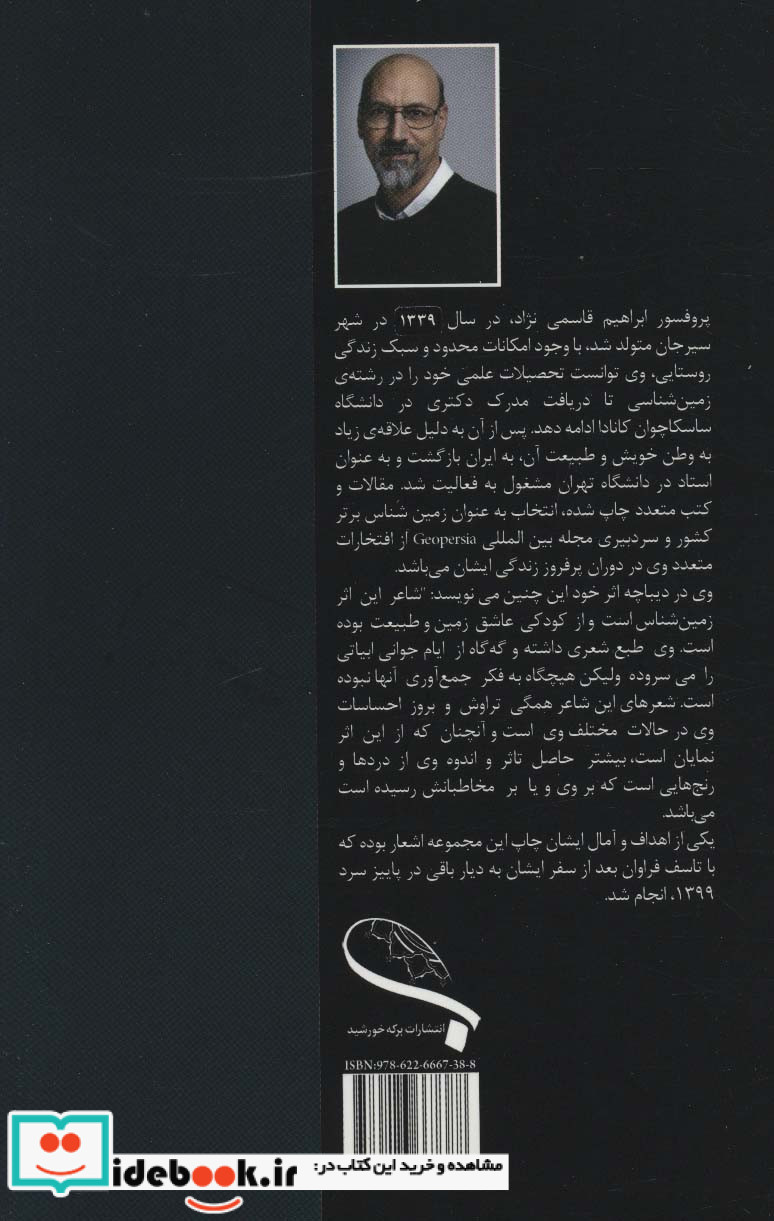 پروفسور ابراهیم قاسمی نژاد، در سال ۱۳۳۹ در شهر
سیرجان متولد شد، با وجود امکانات محدود و سبک زندگی
روستایی، وی توانست تحصیلات علمی خود را در رشته‌ی
زمین‌شناسی تا دریافت مدرک دکتری در دانشگاه
ساسکاچوان کانادا ادامه دهد. پس از آن به دلیل علاقه‌ی زیاد
به وطن خویش و طبیعت آن، به ایران بازگشت و به عنوان
استاد در دانشگاه تهران مشغول به فعالیت شد. مقالات و
کتب متعدد چاپ شده، انتخاب به عنوان زمین شناس برتر
کشور و سردبیری مجله بین المللی Geopersia از افتخارات
متعدد وی در دوران پرفروز زندگی ایشان می‌باشد.
وی در دیباچه اثر خود این چنین می نویسد: "شاعر این اثر
زمین‌شناس است و از کودکی عاشق زمین و طبیعت بوده
است. وی طبع شعری داشته و گه‌گاه از ایام جوانی ابیاتی
را می سروده ولیکن هیچگاه به فکر جمع‌آوری آنها نبوده
است. شعرهای این شاعر همگی تراوش و بروز احساسات
وی در حالات مختلف وی است و آنچنان که از این اثر
نمایان است، بیشتر حاصل تاثر و اندوه وی از دردها و
رنج‌هایی است که بر وی و یا بر مخاطبانش رسیده است
می‌باشد.
یکی از اهداف و آمال ایشان چاپ این مجموعه اشعار بوده که
با تاسف فراوان بعد از سفر ایشان به دیار باقی در پاییز سرد
۱۳۹۹، انجام شد.
انتشارات برکه خورشید
ISBN:978-622-6667-38-8
مشاهده و خرید این کتاب در:
idebook.ir